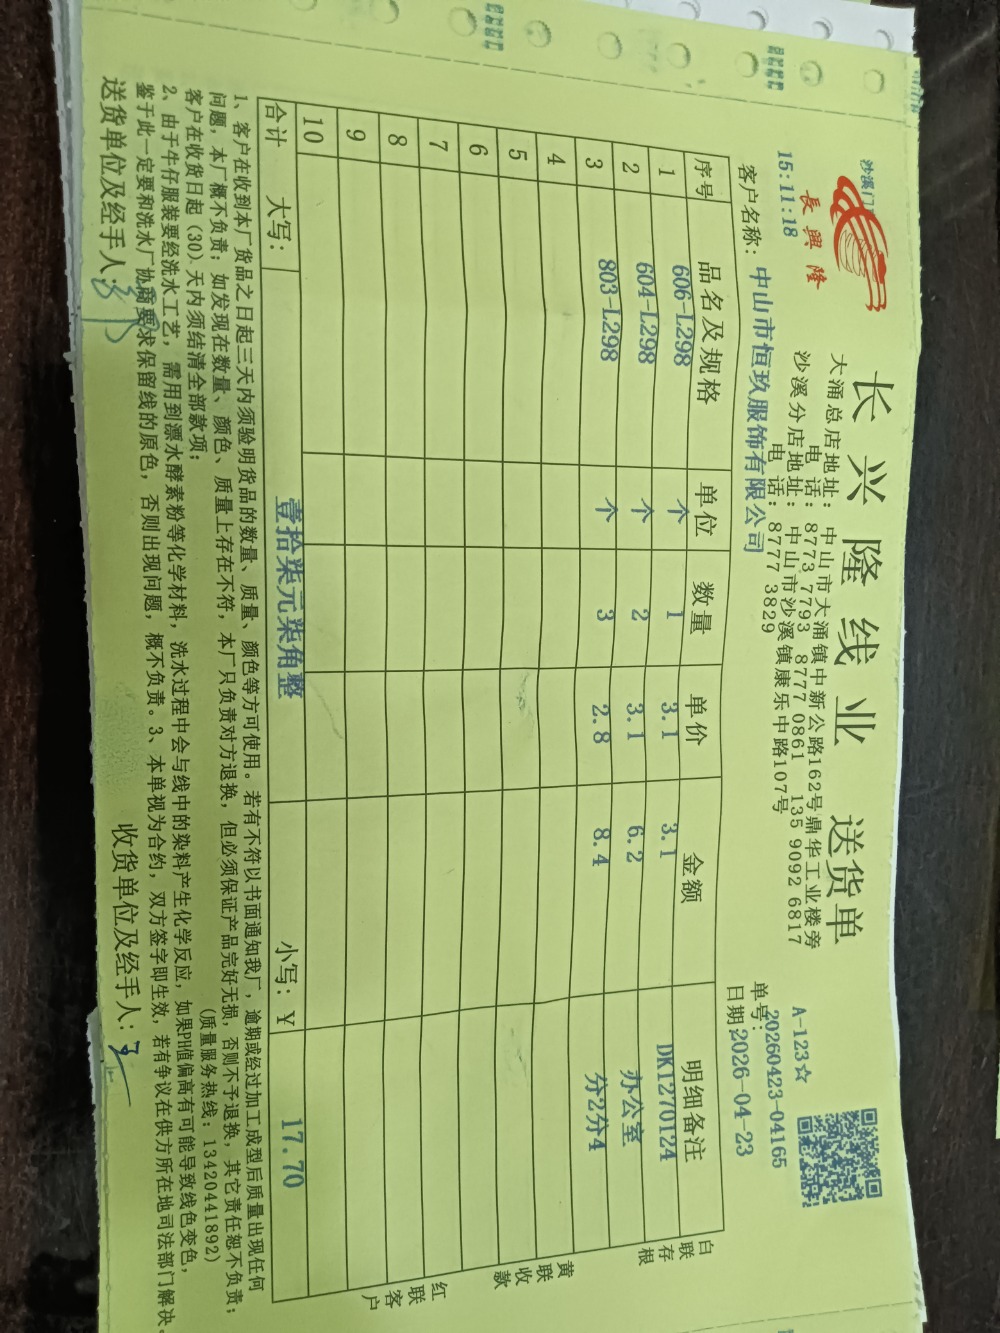 沙溪门
15:11:18
長興隆
长兴隆线业 送货单
大涌总店地址: 中山市大涌镇中新公路162号鼎华工业楼旁
电 话: 8773 7793 8777 0861 135 9092 6817
沙溪分店地址: 中山市沙溪镇康乐中路107号
电 话: 8777 3829
A-123☆
单号: 20260423-04165
日期: 2026-04-23
客户名称: 中山市恒玖服饰有限公司
序号 品名及规格 单位 数量 单价 金额 明细备注
1 606-L298 个 1 3.1 3.1 DK1270124
2 604-L298 个 2 3.1 6.2 办公室
3 803-L298 个 3 2.8 8.4 分2分4
4
5
6
7
8
9
10
合计 大写: 壹拾柒元柒角整 小写: Y 17.70
白联存根
黄联收款
红联客户
1、客户在收到本厂货品之日起三天内须验明货品的数量、质量、颜色等方可使用。若有不符以书面通知我厂，逾期或经过加工成型后质量出现任何
问题，本厂概不负责；如发现在数量、颜色、质量上存在不符，本厂只负责对方退换，但必须保证产品完好无损，否则不予退换，其它责任恕不负责；
客户在收货日起（30）天内须结清全部款项； (质量服务热线: 13420441892)
2、由于牛仔服装要经洗水工艺，需用到漂水酵素粉等化学材料，洗水过程中会与线中的染料产生化学反应，如果PH值偏高有可能导致线色变色，
鉴于此一定要和洗水厂协商要求保留线的原色，否则出现问题，概不负责。3、本单视为合约，双方签字即生效，若有争议在供方所在地司法部门解决。
送货单位及经手人: 收货单位及经手人: